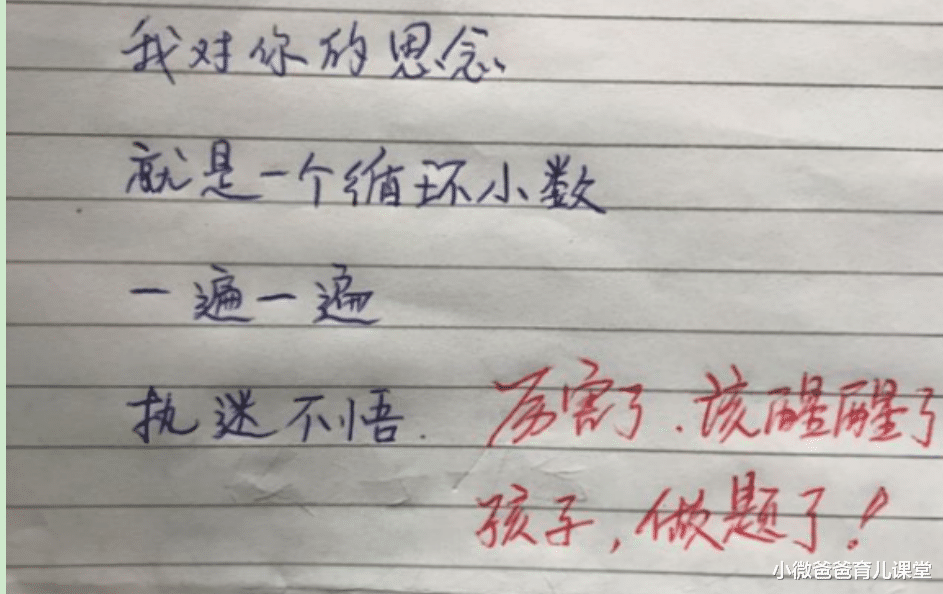 我对你的思念
就是一个循环小数
一遍一遍
执迷不悟.
厉害了.该醒醒了
孩子,做题了!
小微爸爸育儿课堂